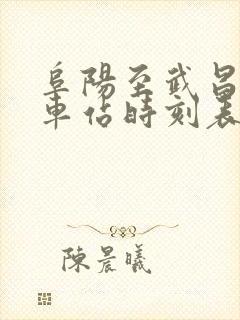 阜陽至武昌
車佔時刻表
陳晨曦